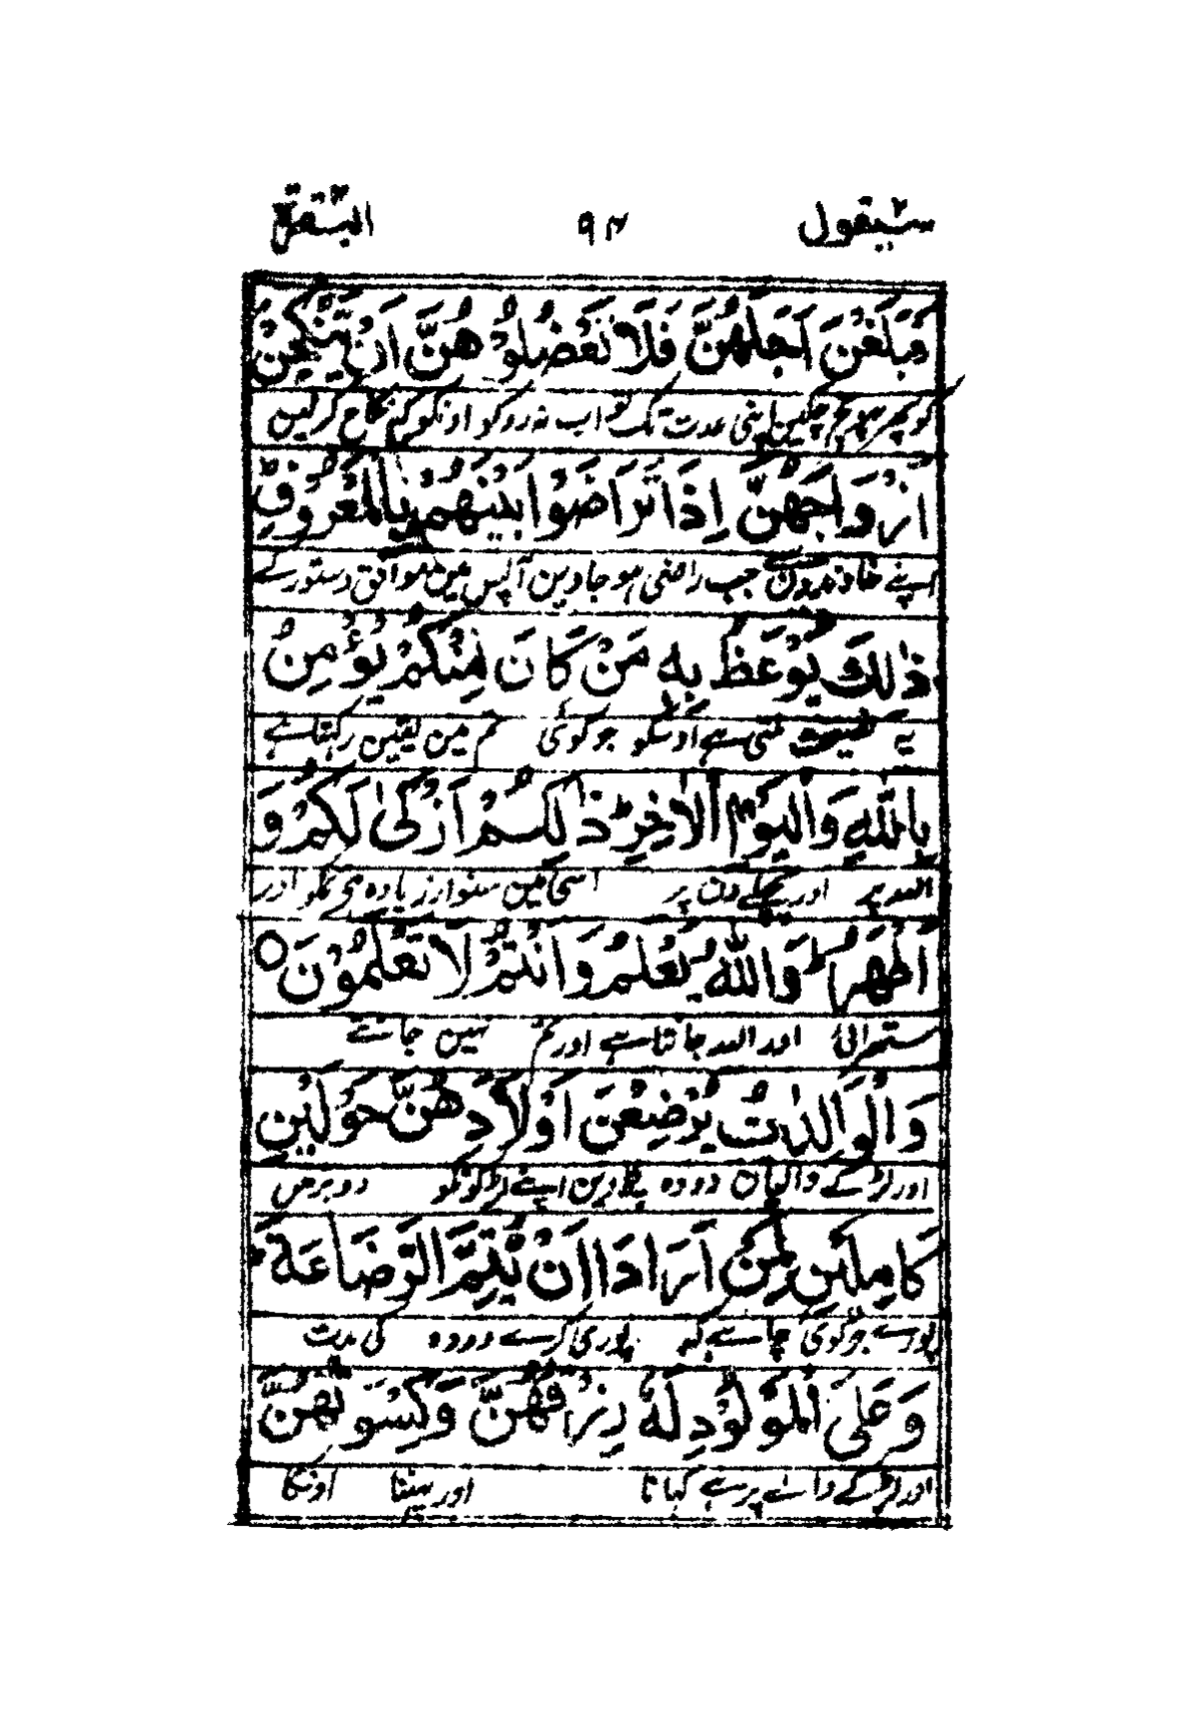 سيقول ٩٤ البقرة
فَبَلَغْنَ اَجَلَهُنَّ فَلَا تَعْضُلُوْ هُنَّ اَنْ يَّنْكِحْنَ
پھر پہونچ چکین اپنی عدت تک تو اب نہ روکو اونکو کہ نکاح کرلین
اَزْوَاجَهُنَّ اِذَا تَرَاضَوْا بَيْنَهُمْ بِالْمَعْرُوْفِ ؕ
اپنے خاوندون سے جب راضی ہو جاوین آپس مین موافق دستور کے
ذٰلِكَ يُوْعَظُ بِهٖ مَنْ كَانَ مِنْكُمْ يُؤْمِنُ
یہ نصیحت ملتی ہے اوسکو جو کوئی تم مین یقین رکہتا ہے
بِاللّٰهِ وَالْيَوْمِ الْاٰخِرِ ؕ ذٰلِكُمْ اَزْكٰى لَكُمْ وَ
اللہ پر اور پچھلے دن پر اسی مین سنوار زیادہ ہے تمکو اور
اَطْهَرُ ؕ وَاللّٰهُ يَعْلَمُ وَاَنْتُمْ لَا تَعْلَمُوْنَ ○
ستھرائی اور اللہ جانتا ہے اور تم نہین جانتے
وَالْوَالِدٰتُ يُرْضِعْنَ اَوْلَادَهُنَّ حَوْلَيْنِ
اور لڑکے والیان دودہ پلاوین اپنے لڑکونکو دو برس
كَامِلَيْنِ لِمَنْ اَرَادَ اَنْ يُّتِمَّ الرَّضَاعَةَ ؕ
پورے جو کوئی چاہے کہ پوری کرے دودہ کی مدت
وَعَلَى الْمَوْلُوْدِ لَهٗ رِزْقُهُنَّ وَكِسْوَتُهُنَّ
اور لڑکے والے پر ہے کہانا اور پہننا اونکا